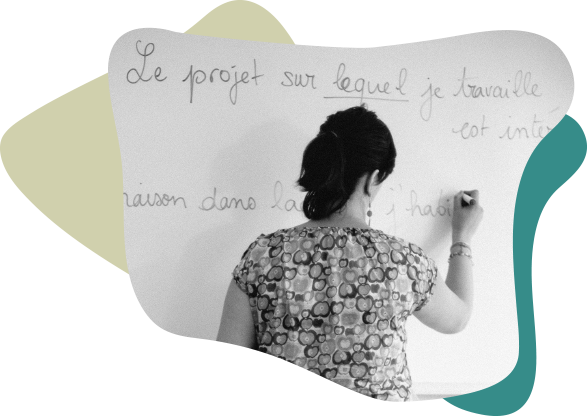 Le projet sur lequel je travaille
est inté
maison dans la j'habi